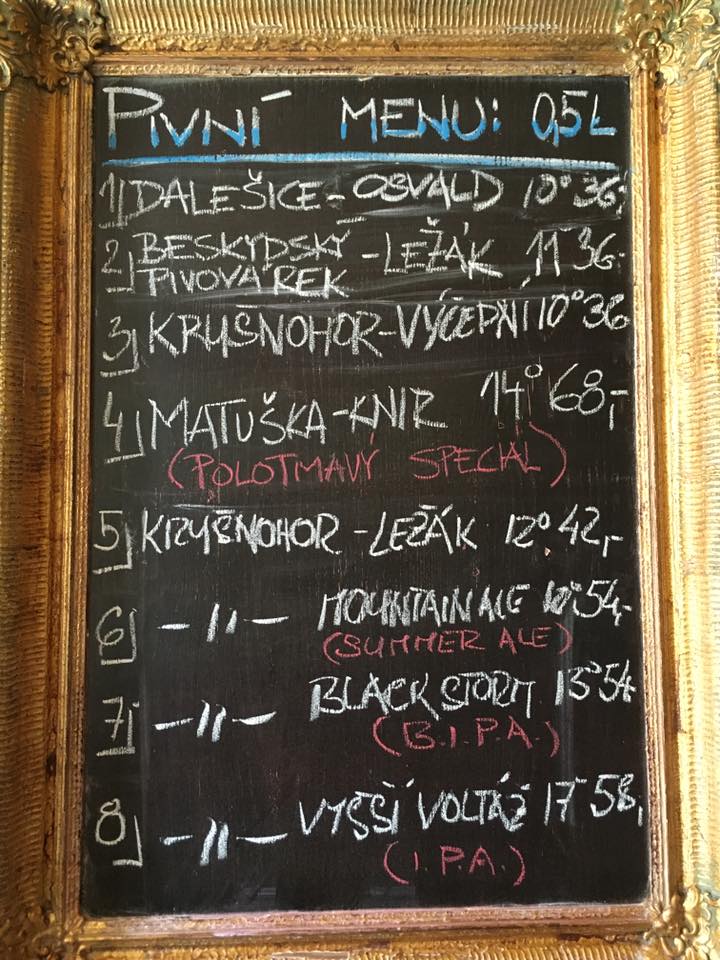 PIVNÍ MENU: 0,5L
1) DALEŠICE - OSVALD 10° 36,-
2) BESKYDSKÝ PIVOVÁREK - LEŽÁK 11° 36,-
3) KRUŠNOHOR - VÝČEPNÍ 10° 36
4) MATUŠKA - KNIR 14° 68,-
(POLOTMAVÝ SPECIÁL)
5) KRUŠNOHOR - LEŽÁK 12° 42,-
6) - 11 - MOUNTAIN ALE 54,-
(SUMMER ALE)
7) -11- BLACK STORM 13° 54
(B.I.P.A.)
8) -11- VYŠŠÍ VOLTÁŽ 17° 58,
(I.P.A.)